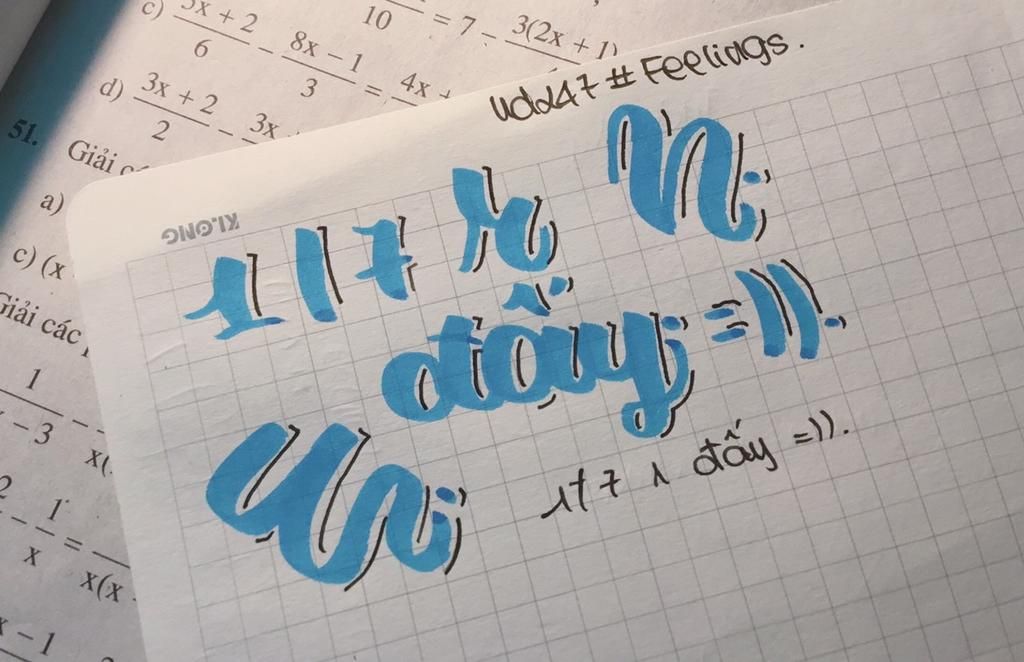 c) 5x + 2 / 6 - 8x - 1 / 3 = 4x +
10 = 7 - 3(2x + 1)
d) 3x + 2 / 2 - 3x
51. Giải
a)
c) (x
Giải các
1 / - 3 -
x(
2 - 1 / x = x(x
x - 1
KLONG
Udd47 # Feelings.
117
đấy =)).
117 đấy =)).